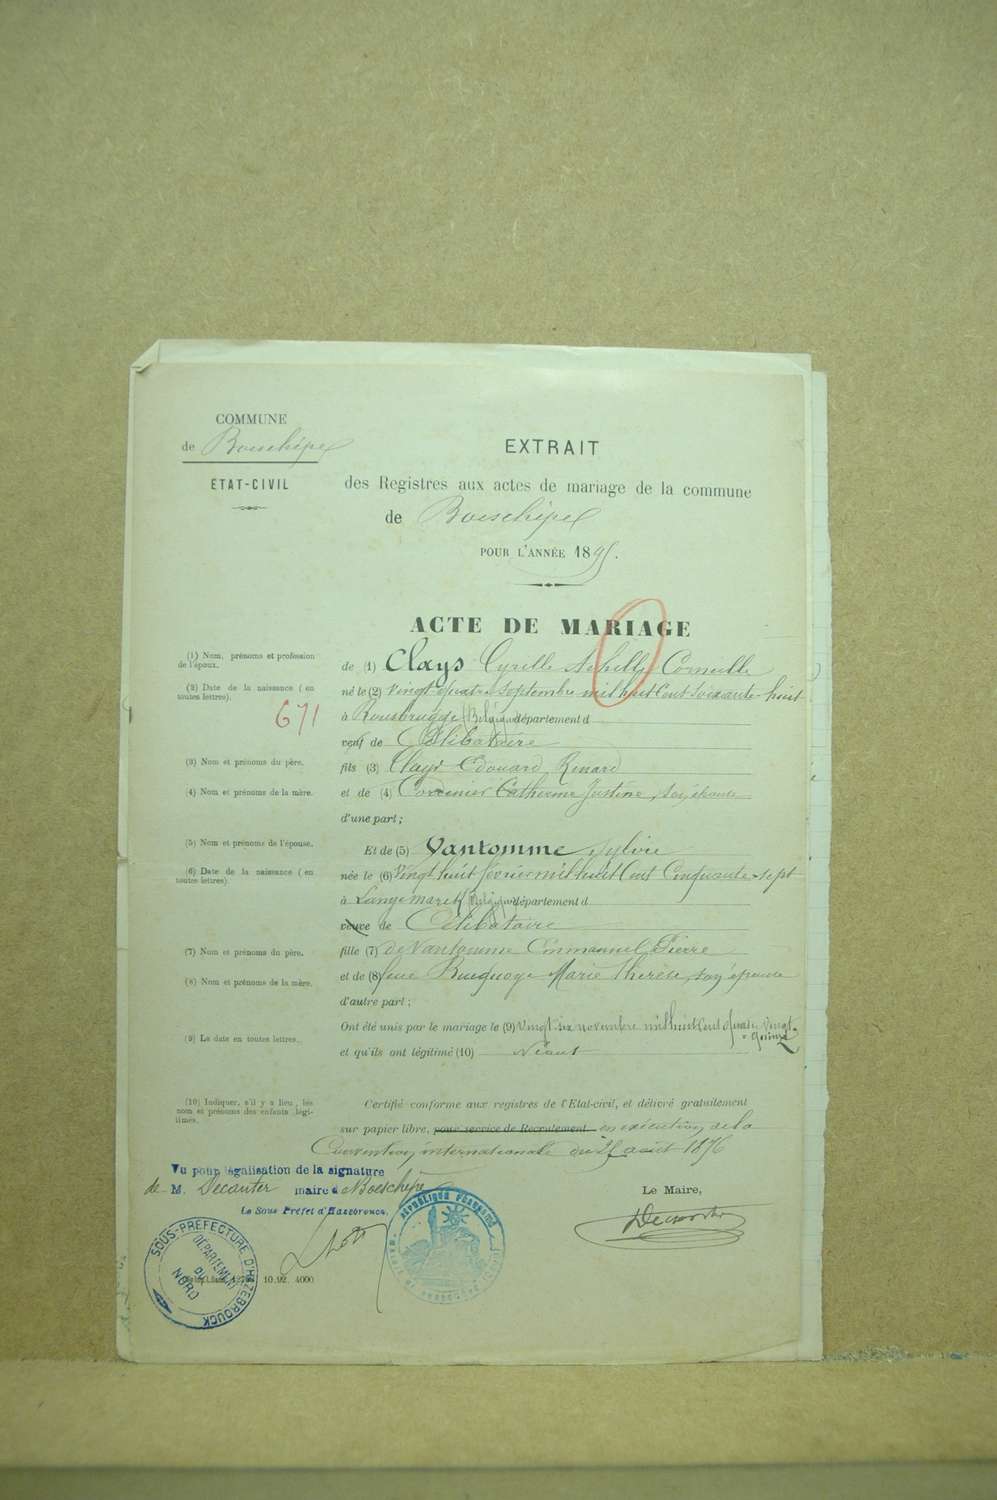 COMMUNE
de Boeschèpe
ÉTAT-CIVIL
EXTRAIT
des Registres aux actes de mariage de la commune
de Boeschèpe
POUR L'ANNÉE 1895.
ACTE DE MARIAGE
(1) Nom, prénoms et profession de l'époux.
de (1) Clays Cyrille Achille Corneille
(2) Date de la naissance (en toutes lettres).
né le (2) vingt quatre septembre mil huit cent soixante-huit
671
à Rousbrugge (Belgique) département d
veuf de Célibataire
(3) Nom et prénoms du père.
fils (3) Clays Edouard, Renard
(4) Nom et prénoms de la mère.
et de (4) Catherine Justine, son épouse
d'une part;
(5) Nom et prénoms de l'épouse.
Et de (5) Vantomme Sylvie
(6) Date de la naissance (en toutes lettres).
née le (6) Vingt huit février mil huit cent cinquante-sept
à Langemarck (Belgique) département d
veuve de Célibataire
(7) Nom et prénoms du père.
fille (7) de Vantomme Emmanuel Pierre
(8) Nom et prénoms de la mère.
et de (8) feue Marie Thérèse, son épouse
d'autre part;
(9) La date en toutes lettres.
Ont été unis par le mariage le (9) vingt six novembre mil huit cent quatre vingt-quinze
et qu'ils ont légitimé (10) Néant
(10) Indiquer, s'il y a lieu, les nom et prénoms des enfants légitimés.
Certifié conforme aux registres de l'Etat-civil, et délivré gratuitement
sur papier libre, pour service de Recrutement en exécution de la
Convention internationale du 25 août 1876
Vu pour légalisation de la signature
de M. Decanter maire à Boeschèpe
Le Sous Préfet d'Hazebrouck,
Le Maire,
Decanter
SOUS-PRÉFECTURE D'HAZEBROUCK
DÉPARTEMENT DU NORD
RÉPUBLIQUE FRANÇAISE
10.92. 4000